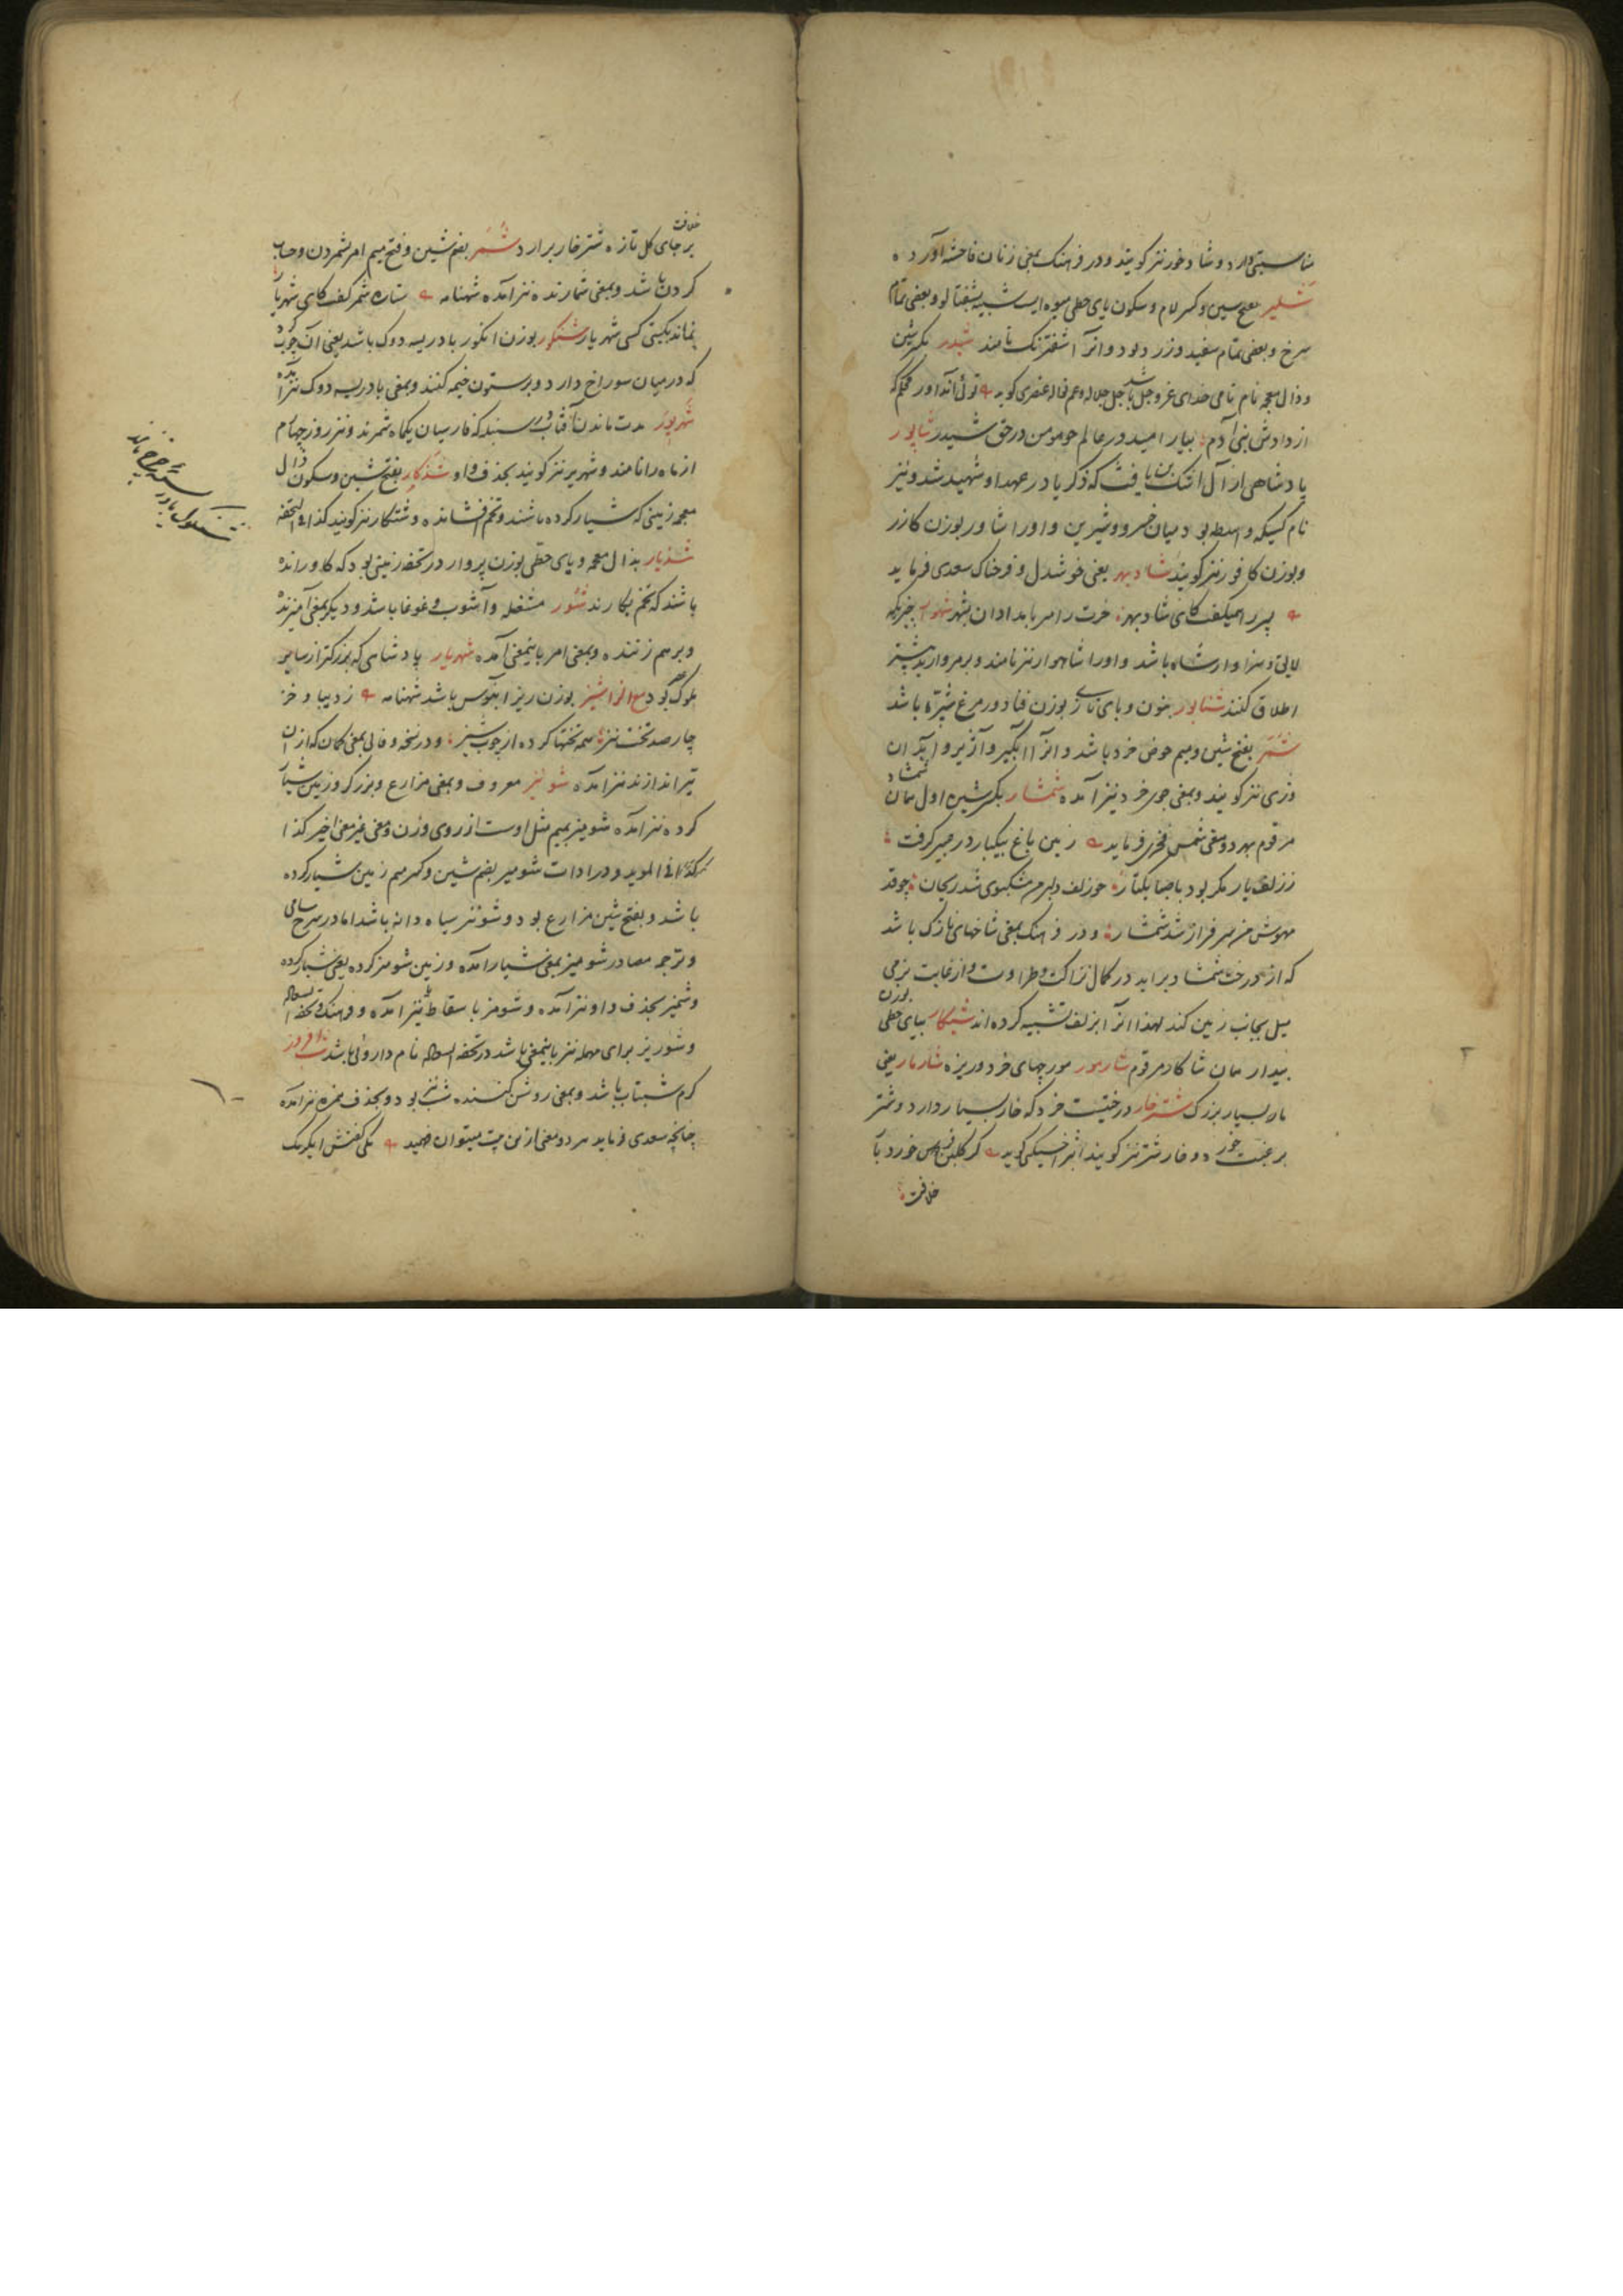 مناسبتی دارد و شاد خور نیز کویند و در فرهنک بمعنی زنان فاحشه آورده
شلیر بفتح سین و کسر لام و سکون یای حطی میوه ایست شبیه بشفتالو و بعضی تمام
سرخ و بعضی تمام سفید و زرد بود و انرا شفترنک نامند شیدر بکسر شین
و ذال معجمه نام نامی خدای عز و جل باشد جل جلاله و عم نواله عنصری کوید
از دادش بنی آدم بیار امید در عالم شاپور
پادشاهی از آل اشک بن یافث که ذکریا در عهد او شهید شد و نیز
نام کسیکه واسطه بود میان خسرو و شیرین و اورا شاور بوزن کازر
و بوزن کافور نیز کویند شادبهر یعنی خوشدل و فرحناک سعدی فرماید
پسر را همیکفت کای شادبهر خرت را مبر بامدادان بشهر شهوار چیزیکه
لایق و سزاوار شاه باشد و اورا شاهوار نیز نامند و بر مروارید بیشتر
اطلاق کنند شنابور بنون و بای تازی بوزن فنادور مرغ شپره باشد
شمر بفتح شین و میم حوض خرد باشد و انرا آبکیر و آژیر و آبدان
وژی نیز کویند و بمعنی جوی خرد نیز آمده شمشار بکسر شین اول همان شمشاد
مرقوم بهر دو معنی شمس فخری فرماید زمین باغ بیکبار در جبر کرفت
ز زلف یار مکر بود با صبا یکتار چو زلف دلبرم مشکبوی شد ریحان چو قد
مهوش من سرفراز شد شمشار و در فرهنک بمعنی شاخهای نازک باشد
که از درخت شمشاد براید در کمال نزاکت و طراوت و از غایت نرمی
میل بجانب زمین کند لهذا انرا بزلف تشبیه کرده اند شیکار بیای حطی بوزن
بیدار همان شاکار مرقوم شارمور مورچهای خرد و ریزه شارمار یعنی
مار بسیار بزرک شترخار درختیست خرد که خار بسیار دارد و شتر
برغبت خورد و خار شتر نیز کویند اثیر اخسیکتی کوید کر کلبن خورد با
خلافت
خلافت
بر جای کل تازه شتر خار برارد شمر بضم شین و فتح میم امر بشمردن و حساب
کردن باشد و بمعنی شمارنده نیز آمده شهنامه ستاره شمر کفت کای شهریار
نماند بکیتی کسی شهریار شنکور بوزن انکور بادریسه دوک باشد یعنی آن چوب کرد
که در میان سوراخ دارد و بر ستون خیمه کنند و بمعنی بادریسه دوک نیز آمده
شهریور مدت ماندن آفتاب در سنبله که فارسیان یکماه شمرند و نیز روز چهارم
از ماه را نامند و شهریر نیز کویند بحذف واو شذکار بفتح شین و سکون ذال
معجمه زمینی که شیار کرده باشند و تخم افشانده و شتکار نیز کویند کذا فی التحفه
شذیار بذال معجمه و یای حطی بوزن پروار در تحفه زمینی بود که کاو رانده
باشند که تخم بکارند شور مشغله و آشوب و غوغا باشد و دیکر بمعنی آمیزنده
و برهم زننده و بمعنی امر باینمعنی آمده شهریار پادشاهی که بزرکتر از سایر
ملوک عصر بود مع الزا شیز بوزن ریز آبنوس باشد شهنامه ز دیبا و خز
چارصد تخت نیز همه تختها کرده از چوب شیز و در نسخه وفائی بمعنی کمان که از آن
تیر اندازند نیز آمده شونیز معروف و بمعنی مزارع و بزرکر و زمین شیار
کرده نیز آمده شومیز بمیم مثل اوست از روی وزن و معنی غیر معنی اخیر کذا
کذا فی الموید و در ادات شومیز بضم شین و کسر میم زمین شیار کرده
باشد و بفتح شین مزارع بود و شونیز سیاه دانه باشد اما در شرح سامی
و ترجمه مصادر شومیز بمعنی شیار آمده و زمین شومیز کرده یعنی شیار کرده
و شمیز بحذف واو نیز آمده و شومز باسقاط یا نیز آمده و فرهنک و تحفه السعاده
و شوریز برای مهمله نیز باینمعنی باشد در تحفه السعاده نام داروئی باشد شب افروز
کرم شبتاب باشد و بمعنی روشن کننده شب نیز بود و بحذف همزه نیز آمده
چنانچه سعدی فرماید هر دو معنی از این بیت میتوان فهمید یکی کفتش ای کرمک